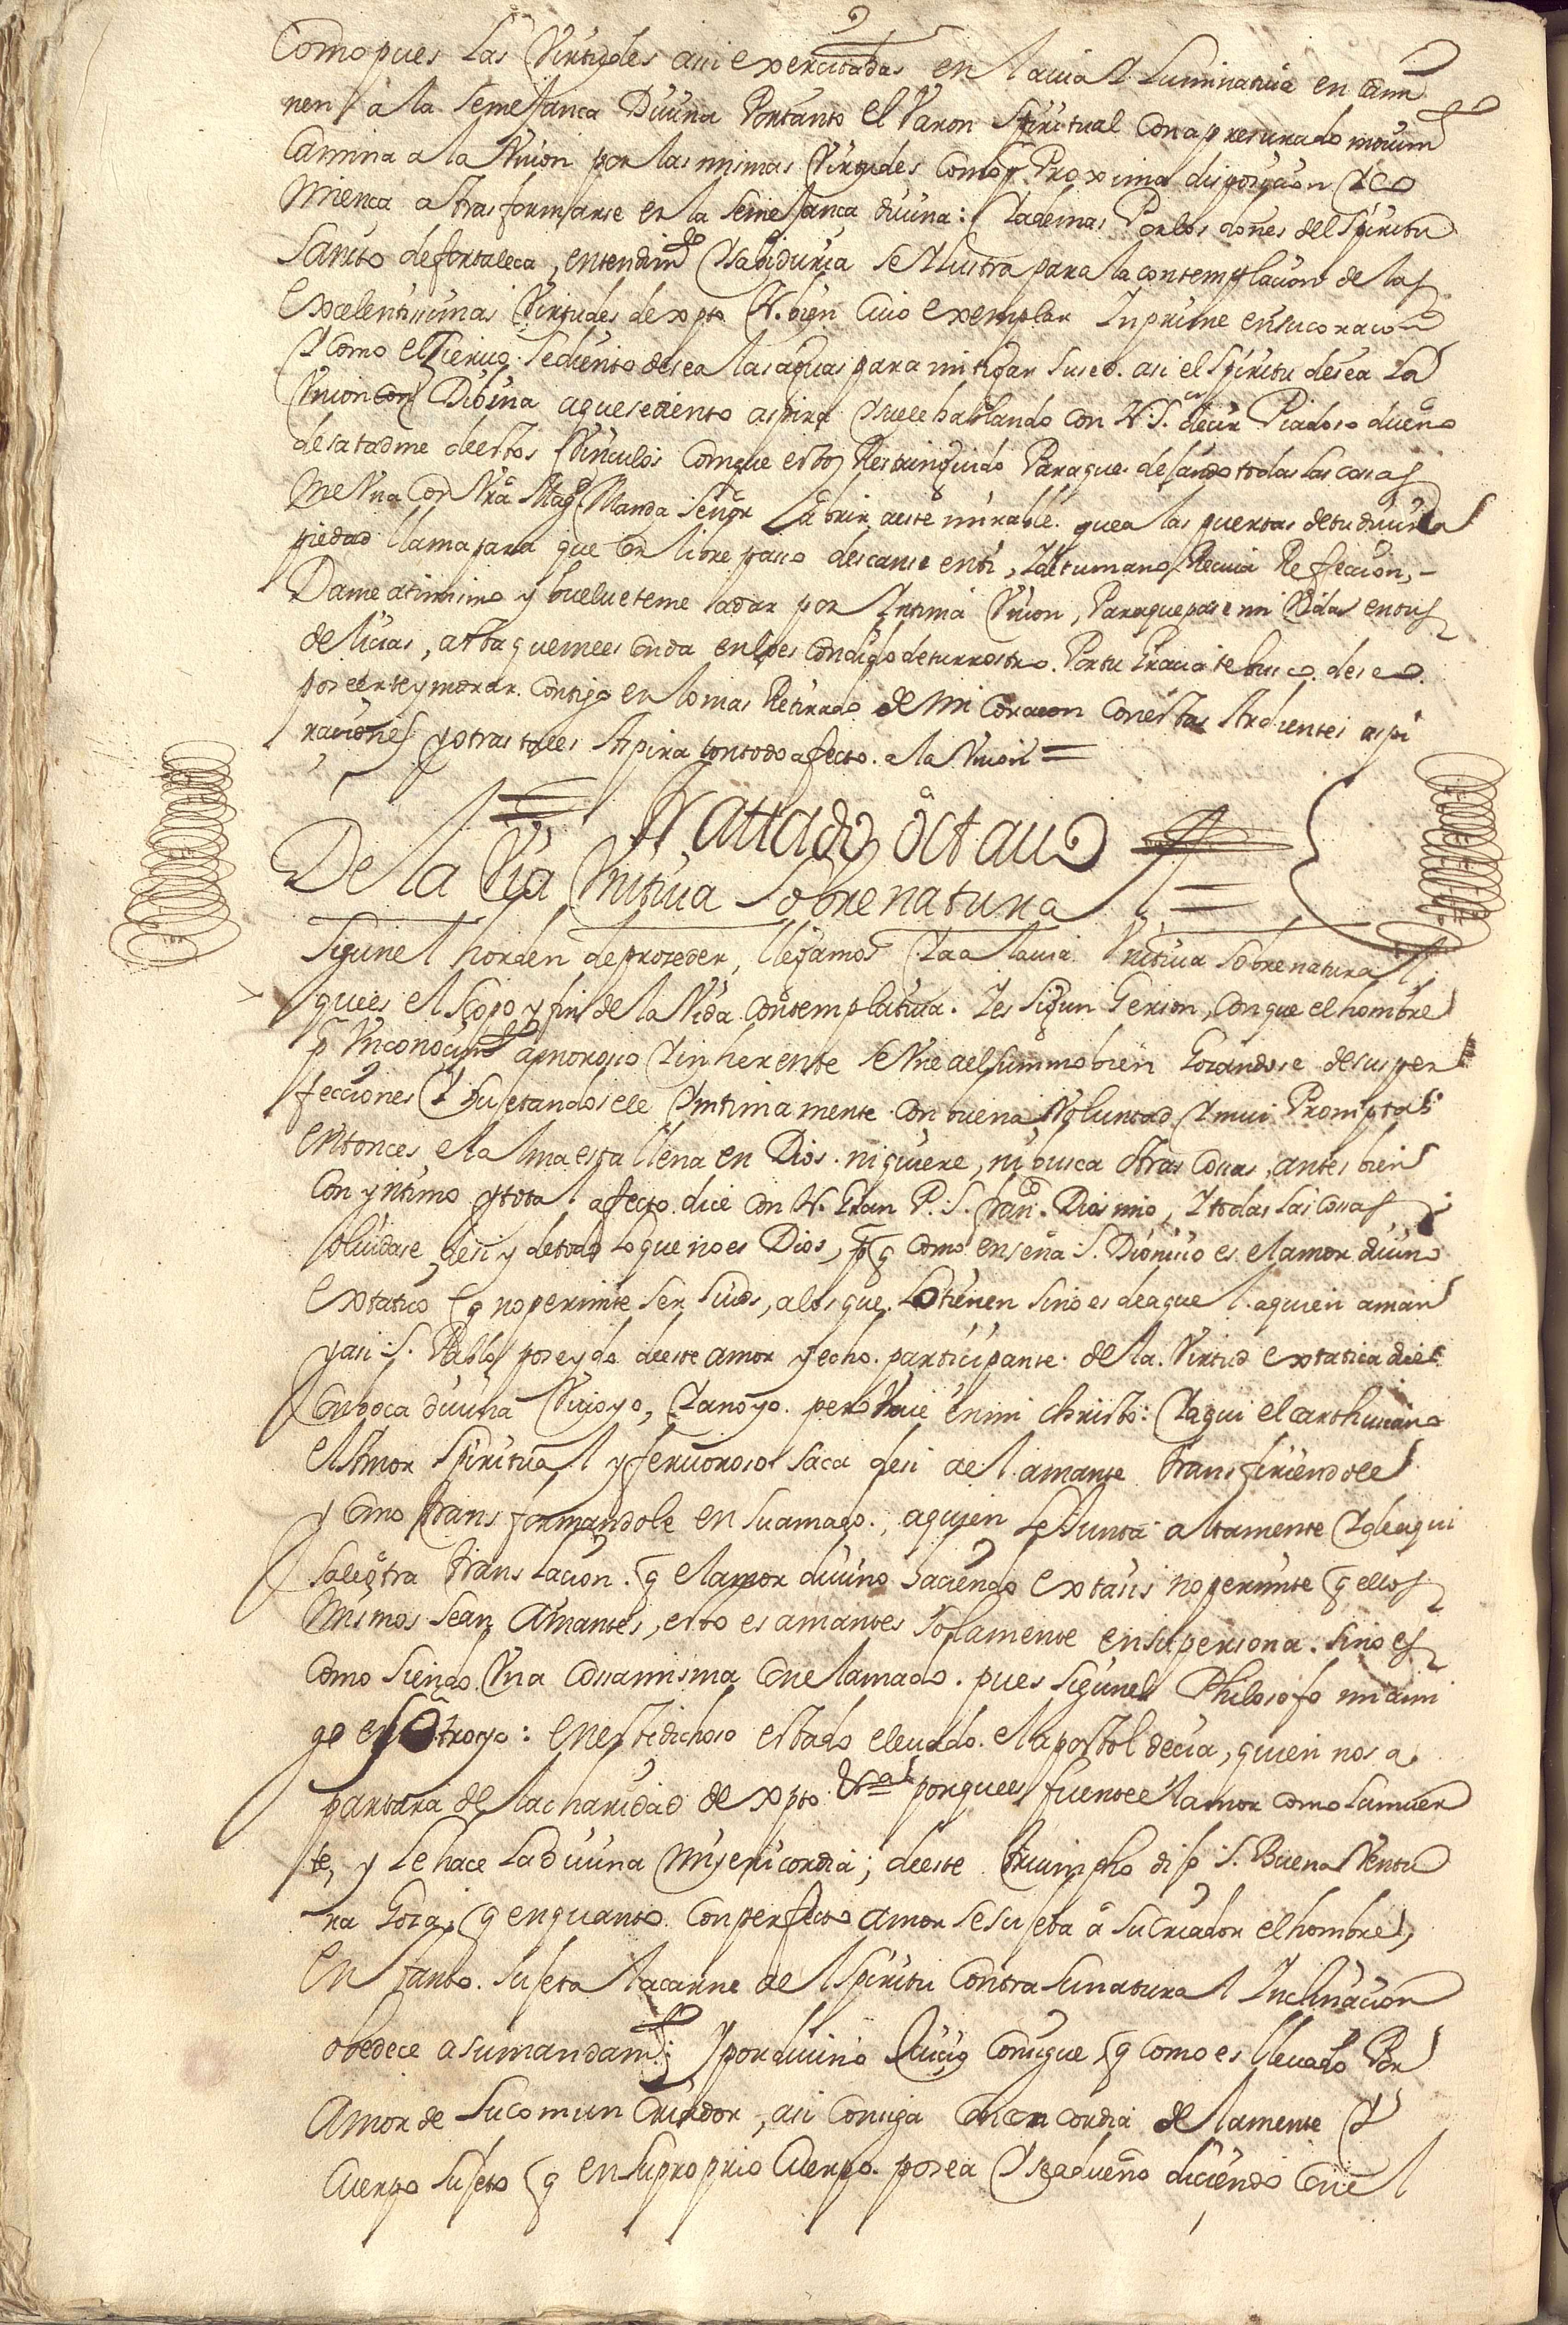 Como pues las Virtudes asi exercitadas en la via Yluminatiua en cami
nen a la semejanca Diuina Portanto el Varon Spiritual con apresurado mouim.to
Camina a la Vnion por las mismas Virtudes como Proxima disposicion Y co
mienca a trasformarse en la semejança diuina: Y ademas Por los dones del Spiritu
Sancto de fortaleca, entendim.to Y sabiduria se Ylustra para la contemplacion de las
excelentissimas Virtudes de xpto N. bien Cuio exemplar Inprime en su coracon
Y como el Cieruo sediento desea las aguas para mitigar su sed. asi el Spiritu desea la
Vnion con Dibina a que sediento aspira Y suele hablando con N. S.or decir Piadoso dueño
desatadme de estos Vinculos con que estoy Restringuido Para que dejando todas las cosas
me Vna con Vra Mag.d Manda Señor abrir a este mirable que a las puertas de tu diuina
piedad llama para que con libre paso descanse en ti, Y de tu mano Reciua Refeccion,
Dame a ti mismo y bueluete me a dar por Yntima Vnion, Para que pase mi Vida en tus
delicias, asta que me esconda en lo escondido de tu rrostro. Por tu Gracia te busco. deseo
poseerte y morar contigo en lo mas Retirado de mi Coracon Con estas Ardientes aspi
raciones y otras tales Aspira con todo afecto. a la Vnion =
Trattado octauo
De la Via Vnitiua Sobrenatural =
Sigun el horden de proceder, llegamos Ya a la via Vnitiua Sobrenatural
que es el Scopo y fin de la Vida Contemplatiua. Y es sigun Gerson, con que el hombre
p Vn conocim.to amoroso Y inherente se Vne a el summo bien Gozandose de sus per
fecciones Y sujetandosele Yntimamente con buena Voluntad Y mui Prompta
entonces el alma esta llena en Dios. ni quiere, ni busca otras Cosas, antes bien
Con yntimo y total afecto dice con N. Gran P. S. Fran.co Dios mio, Y todas las cosas
oluidase de si y de todo lo que no es Dios, pq como enseña S. Dionisio es el amor diuino
extatico q no permite ser suios, a los que lo tienen sino es de aquel a quien aman
y asi S. Pablo poseydo de este amor y echo participante de la Virtud extatica dice
Con boca diuina Viuo yo, Ya no yo. pero Viue en mi christo: Y aqui el carthusiano
el Amor Spiritual y feruoroso saca de si a el amante transfiriendole
y como transformandole en su amado, a quien se Junta altamente Y de aqui
sale otra translacion. q el amor diuino haciendo extasis no permite q ellos
mismos sean Amantes, esto es amantes solamente en su persona. sino es
como siendo Vna cosa misma con el amado. pues sigun el Philosofo mi ami
go es otro yo: en este dichoso estado eleuado. el apostol decia, quien nos a
partara de la charidad de xpto porque es fuerte el amor como la muer
te, y le hace la diuina misericordia; de este triumpho S. Buena Ventu
ra Goza, q en quanto con perfecto amor se sujeta a su Criador el hombre,
en tanto. sujeta la carne a el Spiritu contra su natural Inclinacion
obedece a su mandam.to; Y por diuino Juicio consigue q como es lleuado Por
Amor de su comun Criador, asi consiga Concordia de la mente Y
cuerpo sujeto q en su proprio Cuerpo. posea Y sea dueño diciendo con el